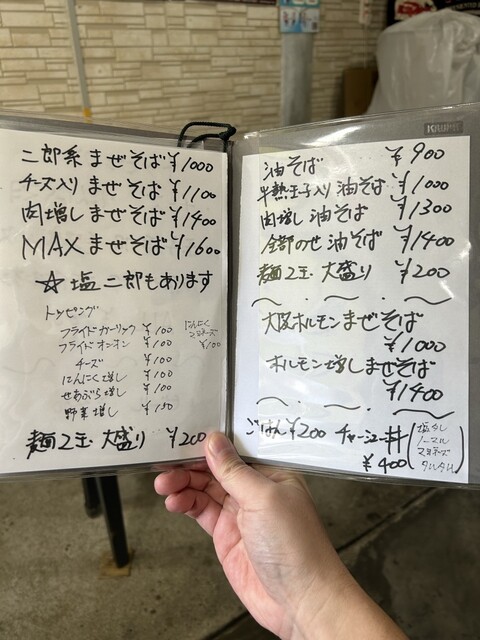 二郎系 まぜそば ¥1000
チーズ入り まぜそば ¥1100
肉増し まぜそば ¥1400
MAX まぜそば ¥1600
☆塩二郎もあります
トッピング
フライドガーリック ¥100
フライドオニオン ¥100
チーズ ¥100
にんにく増し ¥100
せあぶら増し ¥100
野菜増し ¥150
にんにく
マヨネーズ
¥100
麺2玉 大盛り ¥200
油そば ¥900
半熟玉子入り 油そば ¥1000
肉増し 油そば ¥1300
全部のせ 油そば ¥1400
麺2玉 大盛り ¥200
大阪ホルモンまぜそば
¥1000
ホルモン増しまぜそば
¥1400
ごはん ¥200 チャーシュー丼
¥400
塩だし
ノーマル
マヨネーズ
タルタル